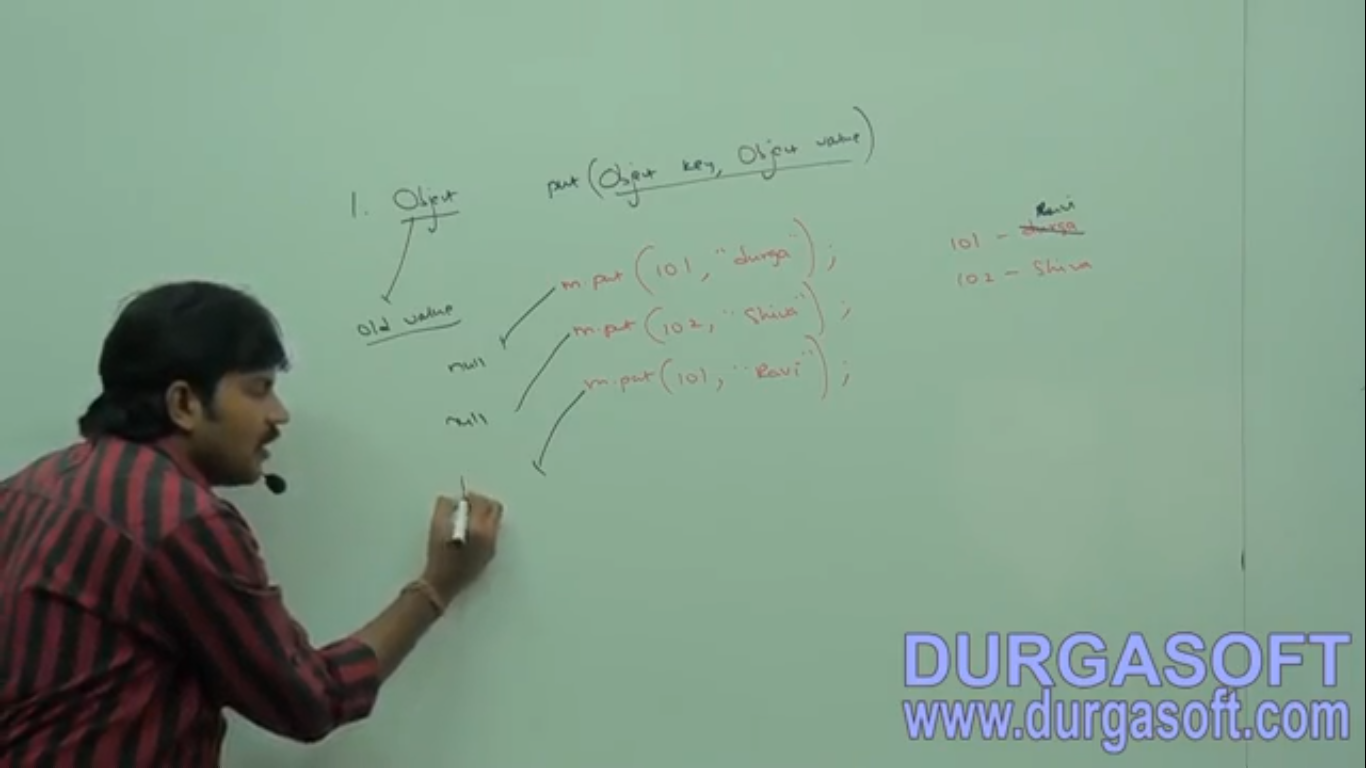 1. Object put(Object key, Object value)
old value
m.put(101, "durga");
null
m.put(102, "Shiva");
null
m.put(101, "Ravi");
Ravi
101 - durga
102 - Shiva
DURGASOFT
www.durgasoft.com